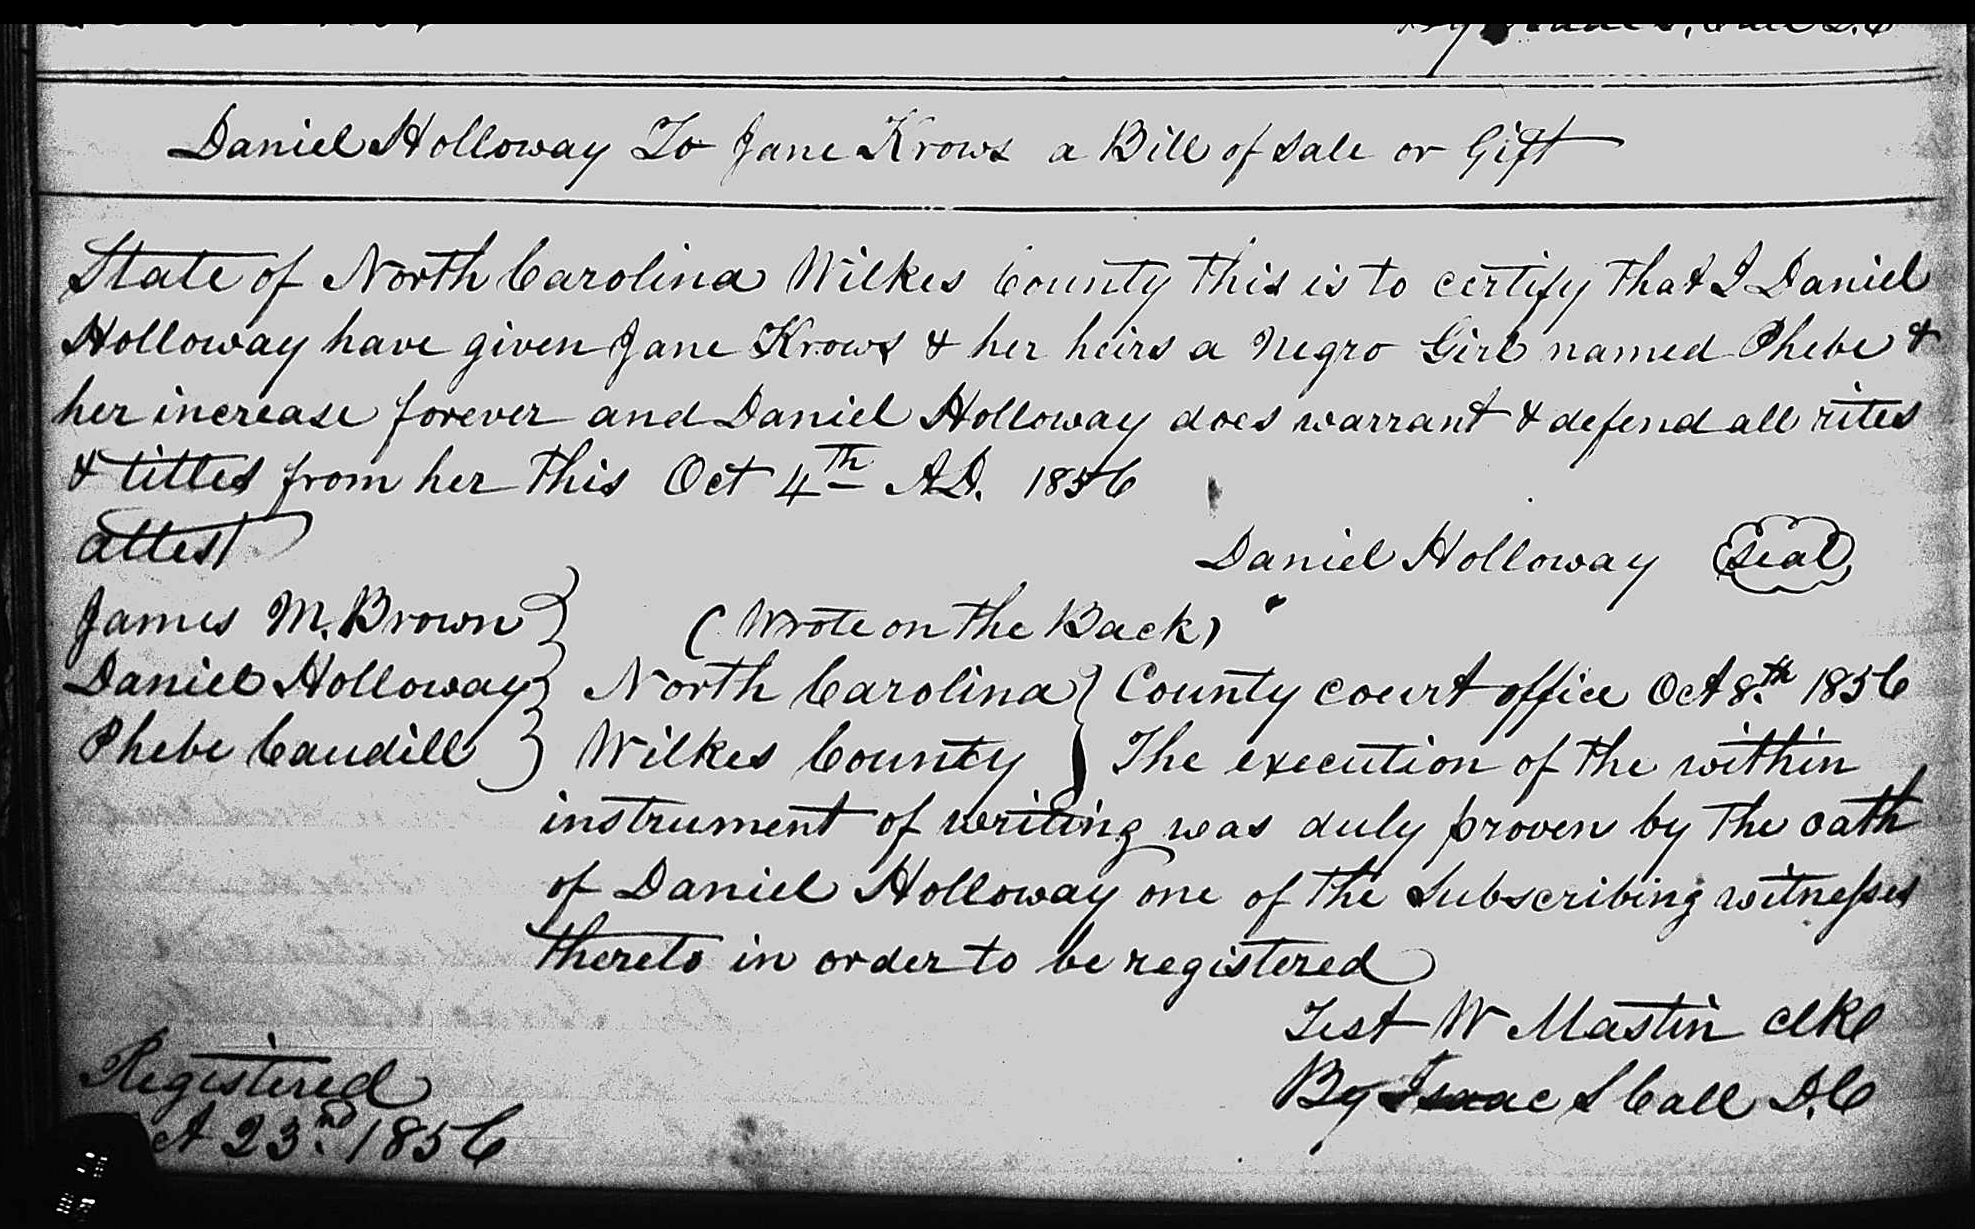 Daniel Holloway To Jane Krows a Bill of Sale or Gift
State of North Carolina Wilkes County This is to certify That I Daniel
Holloway have given Jane Krows & her heirs a Negro Girl named Phebe &
her increase forever and Daniel Holloway does warrant & defend all rites
& titles from her This Oct 4th AD. 1856
attest
Daniel Holloway Seal
James M. Brown
(Wrote on The Back)
Daniel Holloway North Carolina County court office Oct 8th 1856
Phebe Caudill Wilkes County The execution of The within
instrument of writing was duly proven by The oath
of Daniel Holloway one of The Subscribing witnesses
thereto in order to be registered
Test W Mastin Clk
By Isaac S Call D.C
Registered
23nd 1856